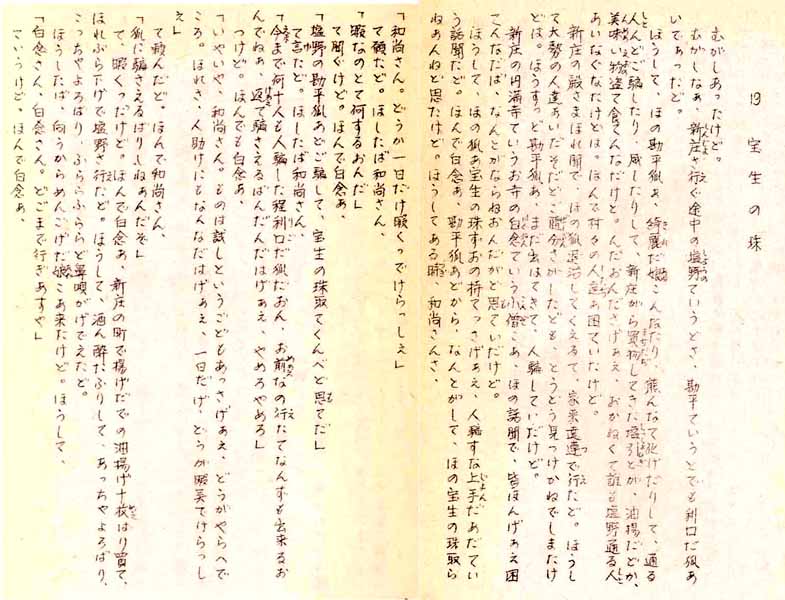 19 宝生の珠
むがしあったけど。
むがしなぁ、新庄さ行ぐ途中の塩野ていうどさ、勘平ていうとでも利口だ狐あ
いであったど。
ほうして、ほの勘平狐ぁ、綺麗だ娘こんなたり、熊んなて化げだりして、通る
人んどご騙したり、威しだりして、新庄がら買物してきた塩引とが、油揚だどか、
美味い物盗て食てんなだけど。んだおんださげぁえ、おかねくて誰も塩野通る人
あいなぐなたけどは。ほんで村々の人達ぁ困ていたけど。
新庄の殿さまほれ聞で、ほの狐退治してくえるて、家来達連で行たど。ほうし
て大勢の人達ぁいだそだどご随分さがしたども、とうとう見つけかねでしまたけ
どは。ほうすっど勘平狐ぁ、まだ出はてきて、人騙していだけど。
新庄の円満寺ていうお寺の白念ていう小僧こあ、ほの話聞で、皆ほんげぁえ困
てんなだば、なんとかならねおんだがど思ていだけど。
ほうして、ほの狐ぁ宝生の珠ずおの持てっさげぁえ、人騙すな上手だあだてい
う話聞だど。ほんで白念ぁ、勘平狐あどから、なんとがして、ほの宝生の珠取ら
ねぁんねど思たけど。ほうしてある時、和尚さんさ、
「和尚さん。どうか一日だけ暇くってけらっしぇえ」
て願たど。ほしたば和尚さん、
「暇なのとて何するおんだ」
て聞ぐけど。ほんで白念ぁ、
「塩野の勘平狐あどご騙して、宝生の珠取てくんべど思てだ」
て言たど。ほしたば和尚さん、
「今まで何十人も人騙した程利口だ狐だおん、お前なの行たてなんずも出来るお
んでねぁ、返て騙さえるばんだんだはげぁえ、やめろやめろ」
つけど。ほんでも白念ぁ、
「いやいや、和尚さん。ものは試しというごどもあっさげぁえ、どうがやらへで
ころ。ほれさ、人助けにもなんなだはげぁえ、一日だけ、どうが暇呉でけらっし
ぇえ」
て頼んだど。ほんで和尚さん、
「狐に騙さえるばりしねぁんだぞ」
て、暇くったけど。ほんで白念ぁ、新庄の町で揚げだでの油揚げ十枚ばり買て、
ほれぶら下げで塩野さ行たど。ほうして、酒ん酔たふりして、あっちゃよろばり、
こっちゃよろばり、ふららふららど鼻唄がげでえたど。
ほうしたば、向うからめんごげだ娘こあ来たけど。ほうして、
「白念さん、白念さん。どごまで行ぎあすや」
ていうけど。ほんで白念ぁ、